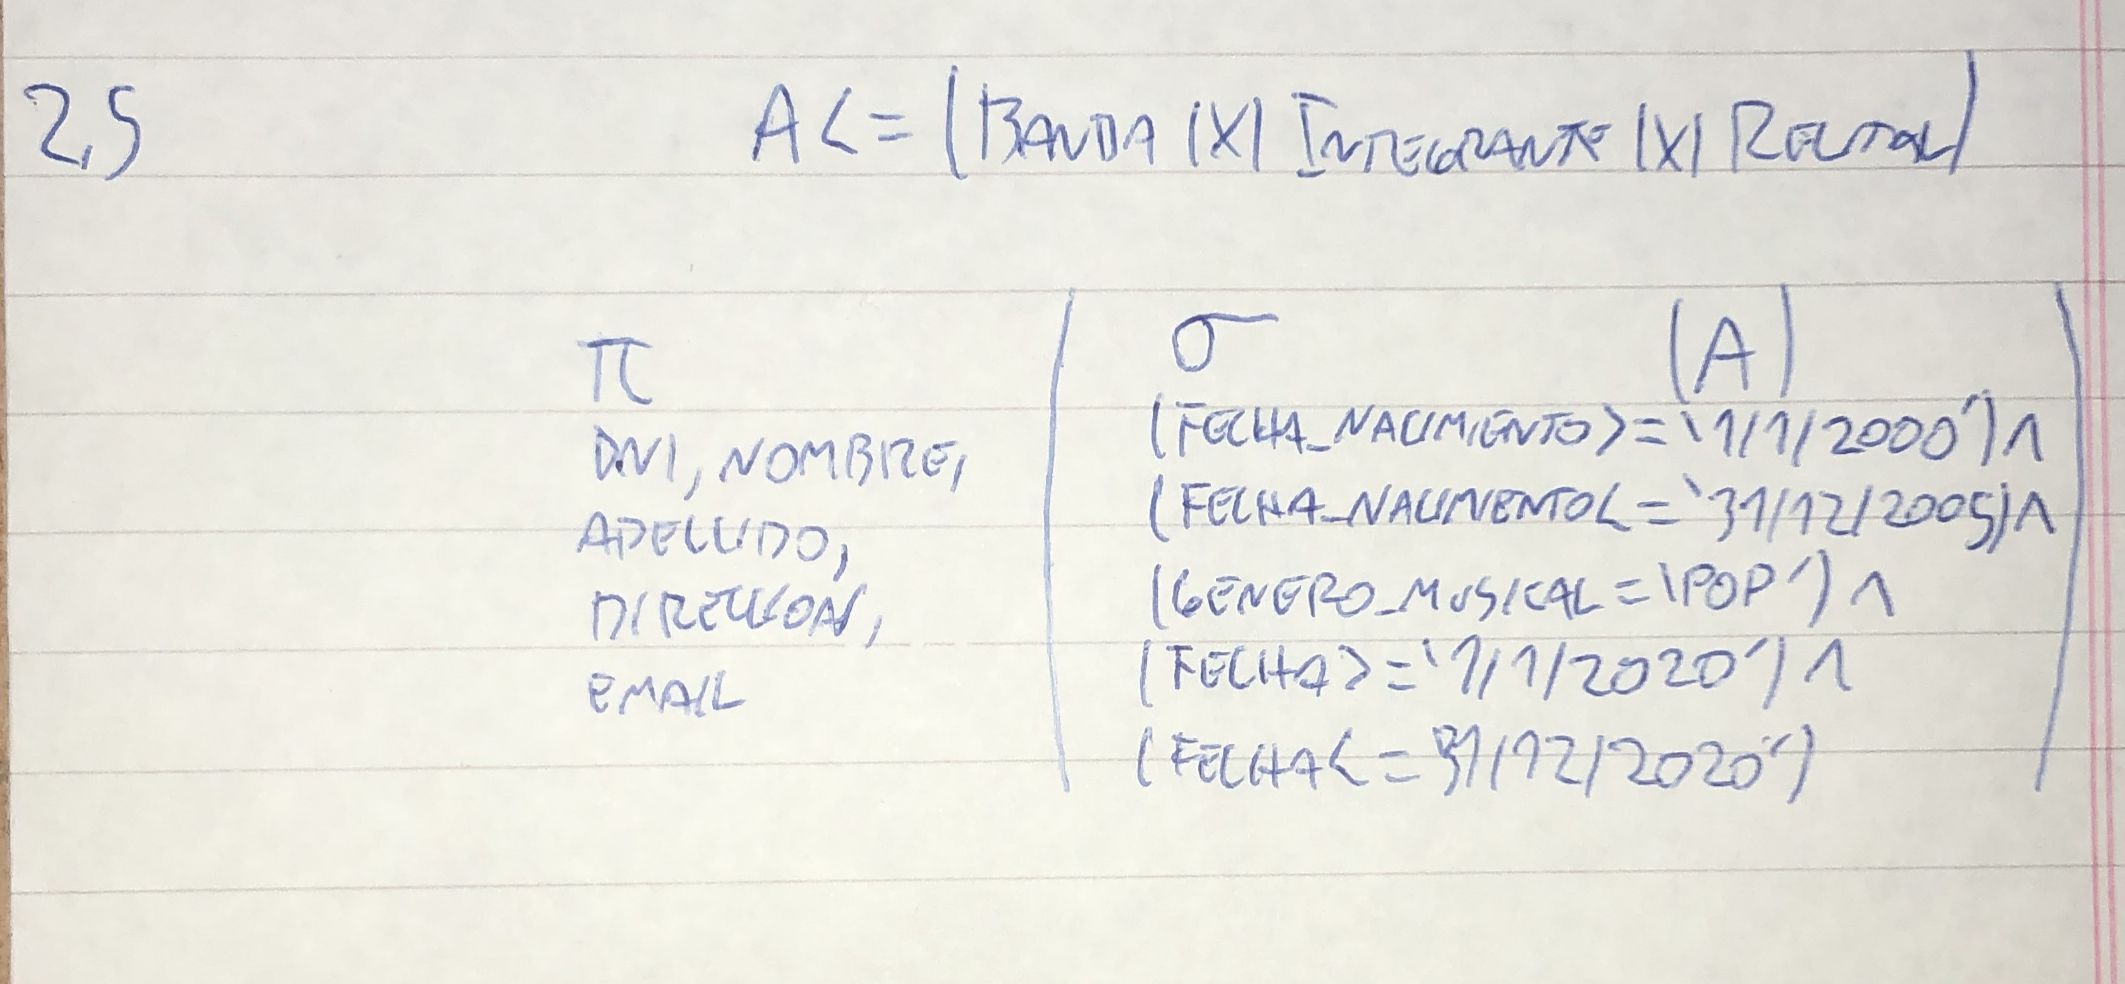 2,5
A <= (BANDA |X| INTEGRANTE |X| RECITAL)
π ( σ (A) )
DNI, NOMBRE,
APELLIDO,
DIRECCION,
EMAIL
(FECHA_NACIMIENTO >= '1/1/2000') ∧
(FECHA_NACIMIENTO <= '31/12/2005) ∧
(GENERO_MUSICAL = 'POP') ∧
(FECHA >= '1/1/2020') ∧
(FECHA <= 31/12/2020')